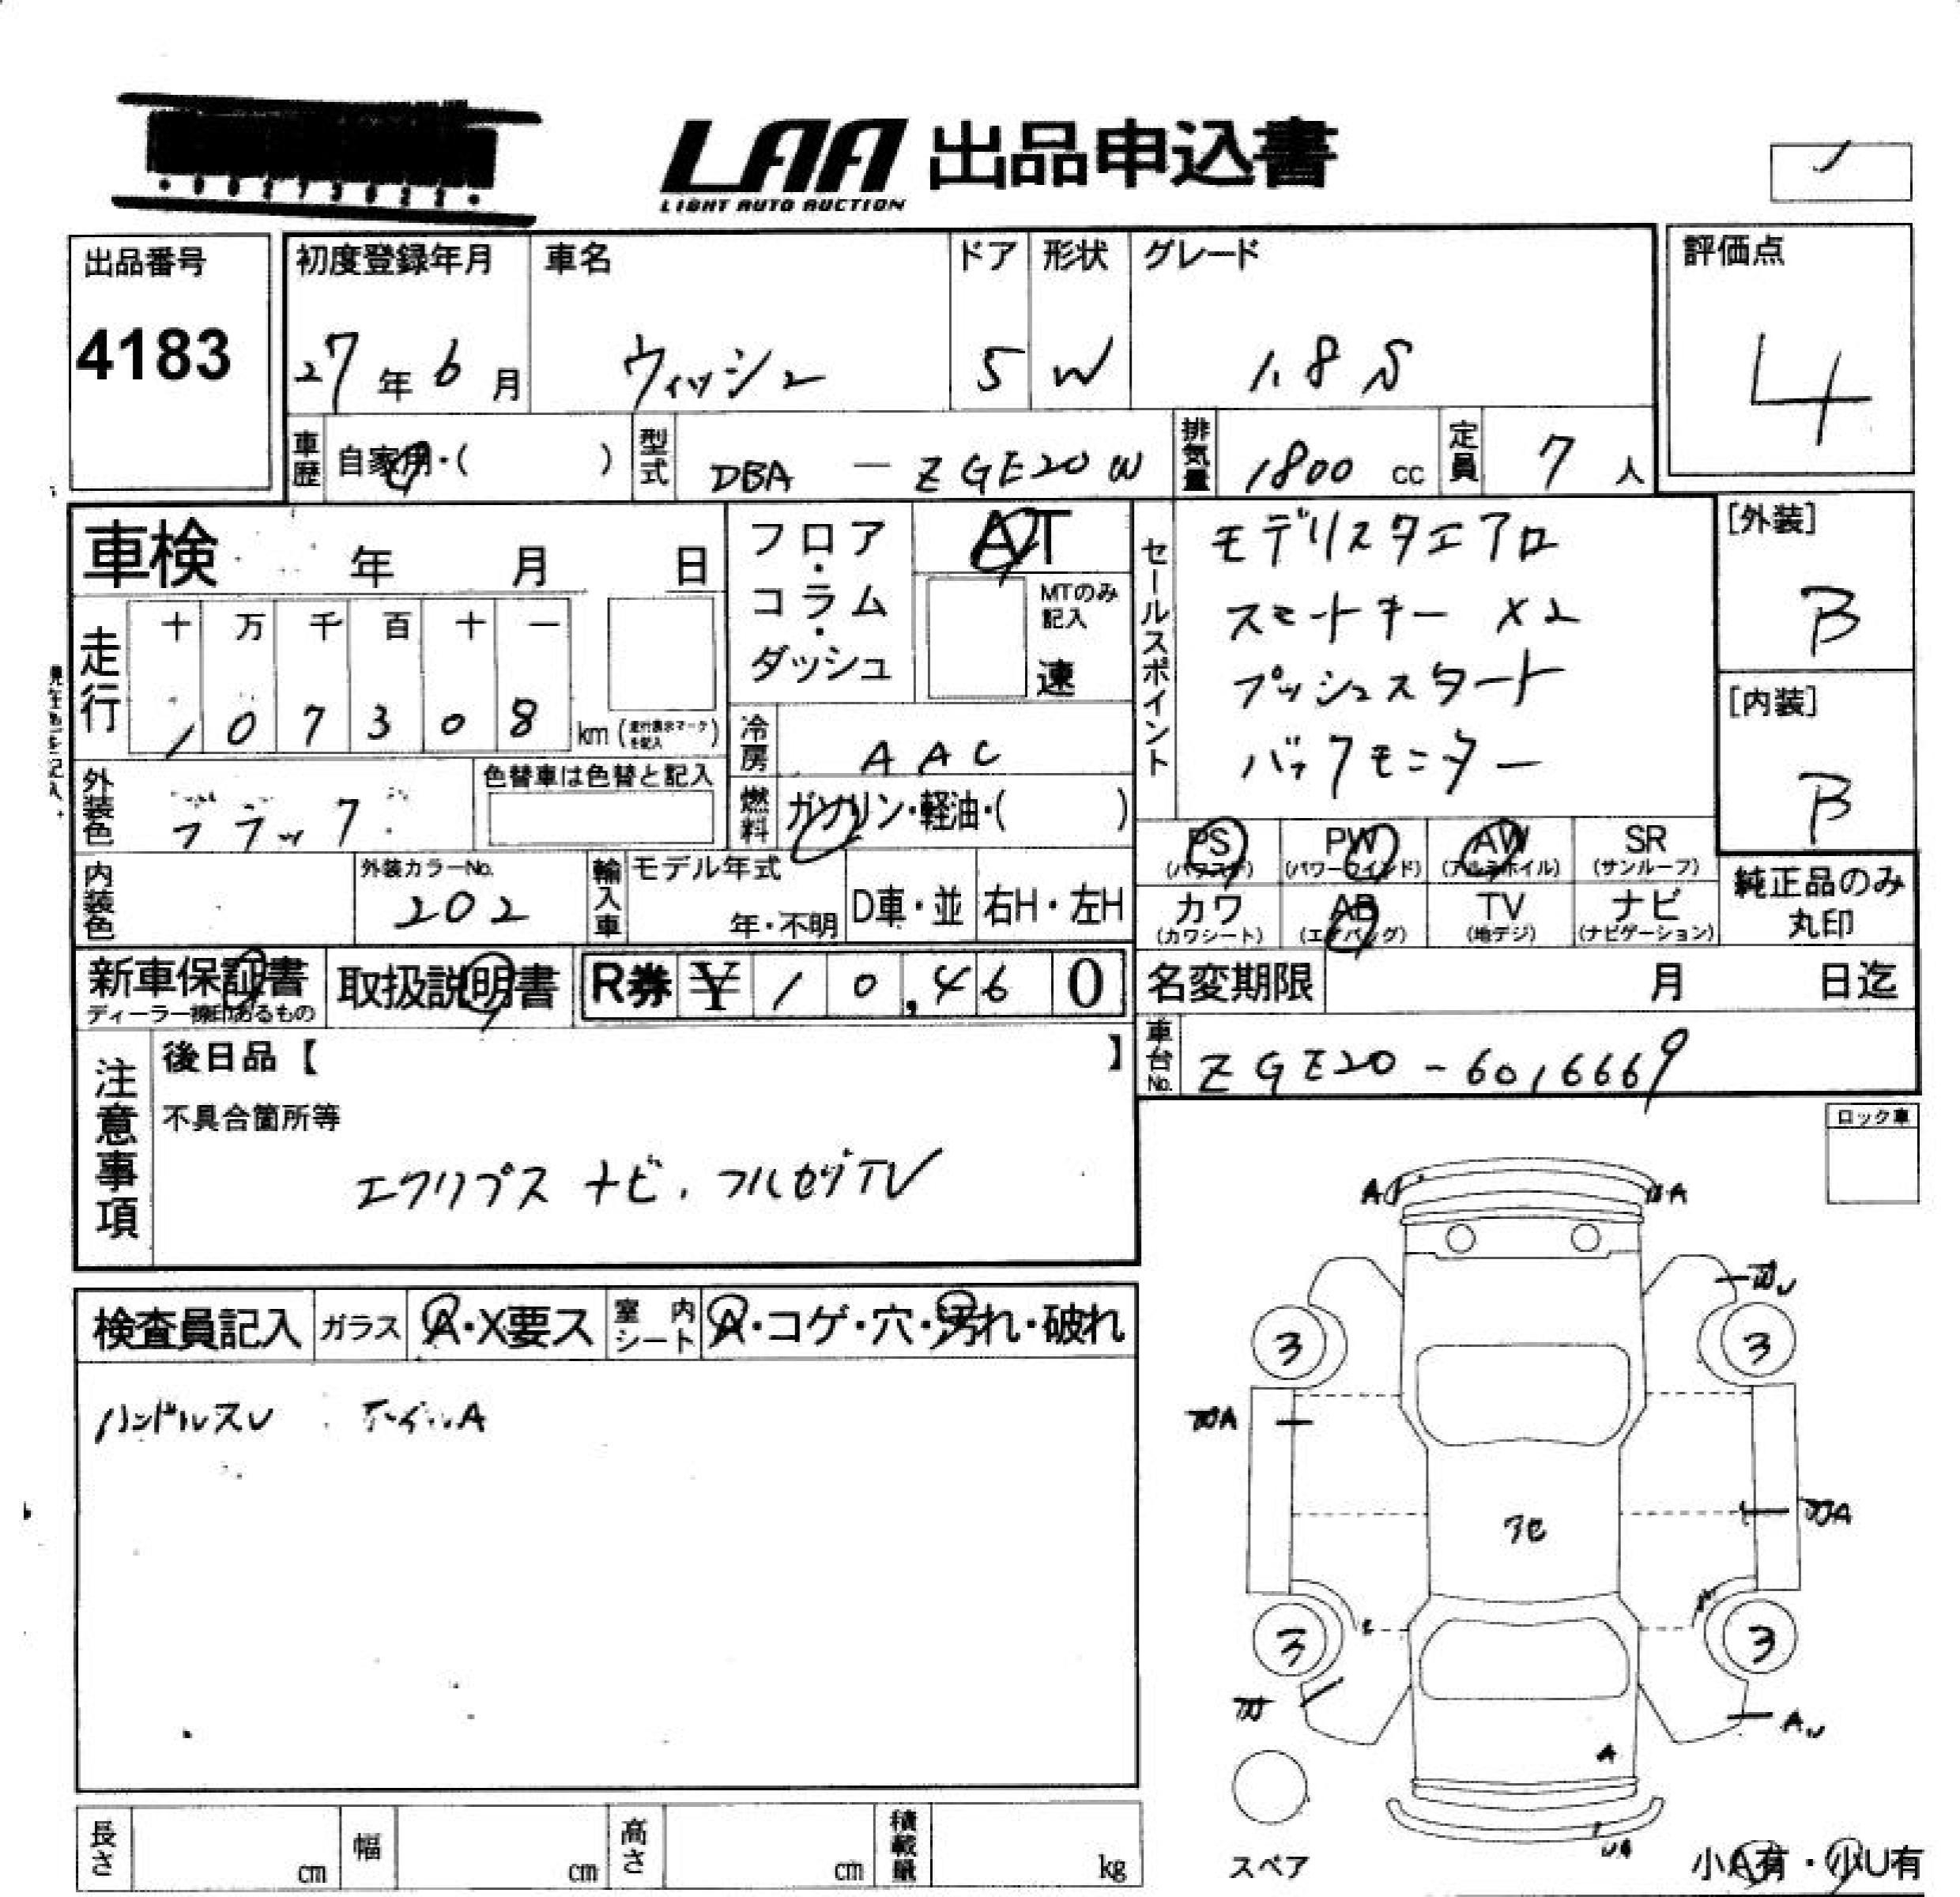 LAA 出品申込書
LIGHT AUTO AUCTION
出品番号
4183
初度登録年月 車名 ドア 形状 グレード
27年6月 ウィッシュ 5 W 1.8S
評価点
4
車歴 自家用・( ) 型式 DBA — ZGE20W 排気量 1800 cc 定員 7 人
車検 年 月 日
フロア・コラム・ダッシュ
AT
MTのみ記入
速
セールスポイント
モデリスタエアロ
スマートキー ×2
プッシュスタート
バックモニター
[外装]
B
[内装]
B
走行
十 万 千 百 十 一
1 0 7 3 0 8 km (走行表示マークを記入)
冷房 AAC
外装色 ブラック
色替車は色替と記入
燃料 ガソリン・軽油・( )
PS (パワステ) PW (パワーウインド) AW (アルミホイル) SR (サンルーフ)
カワ (カワシート) AB (エアバッグ) TV (地デジ) ナビ (ナビゲーション)
純正品のみ
丸印
内装色
外装カラーNo.
202
輸入車 モデル年式
年・不明 D車・並 右H・左H
新車保証書
ディーラー捺印あるもの
取扱説明書
R券 ¥ 10,460
名変期限 月 日迄
車台No. ZGE20-6016669
注意事項
後日品【 】
不具合箇所等
エクリプス ナビ, フルセグTV
ロック車
検査員記入 ガラス A・X要ス 室内シート A・コゲ・穴・汚れ・破れ
ハンドルスレ ホイールA
A
A
3
3
A
A
3
3
A
A
スペア
小A有・小U有
長さ cm 幅 cm 高さ cm 積載量 kg